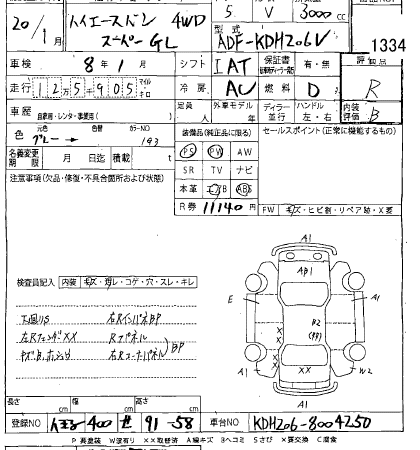 5 V 3000 cc
20/1月 ハイエースバン 4WD
スーパーGL
型式 ADF-KDH206V
1334
車検 8年1月 シフト IAT 保証書 有・無 評価点 R
走行 125905 マイル・キロ 冷房 AC 燃料 D 内装評価 B
車歴 自家用・レンタ・事業用( ) 定員 人 外車モデル 年 ディーラー 並行 ハンドル 左・右
色 元色 グレー → 色替 カラーNO 193
装備品(純正品に限る) セールスポイント(正常に機能するもの)
名義変更期限 月 日迄 積載 t
PS PW AW
SR TV ナビ
本革 エアB ABS
注意事項(欠品・修復・不具合箇所および状態)
R券 11140 円
FW キズ・ヒビ割・リペア跡・X要
A1
AB1
検査員記入 内装 キズ・汚レ・コゲ・穴・スレ・キレ
E A1
下回りS 右RインパネBP
左RフェンダXX Rパネル
右Rコーナーパネル BP
W2
XX W2
A1
長さ cm 幅 cm 高さ cm
登録NO 400 せ 91-58 車台NO KDH206-8004250
P 要塗装 W波有り XX取替済 A線キズ Bヘコミ Sさび X要交換 C腐食